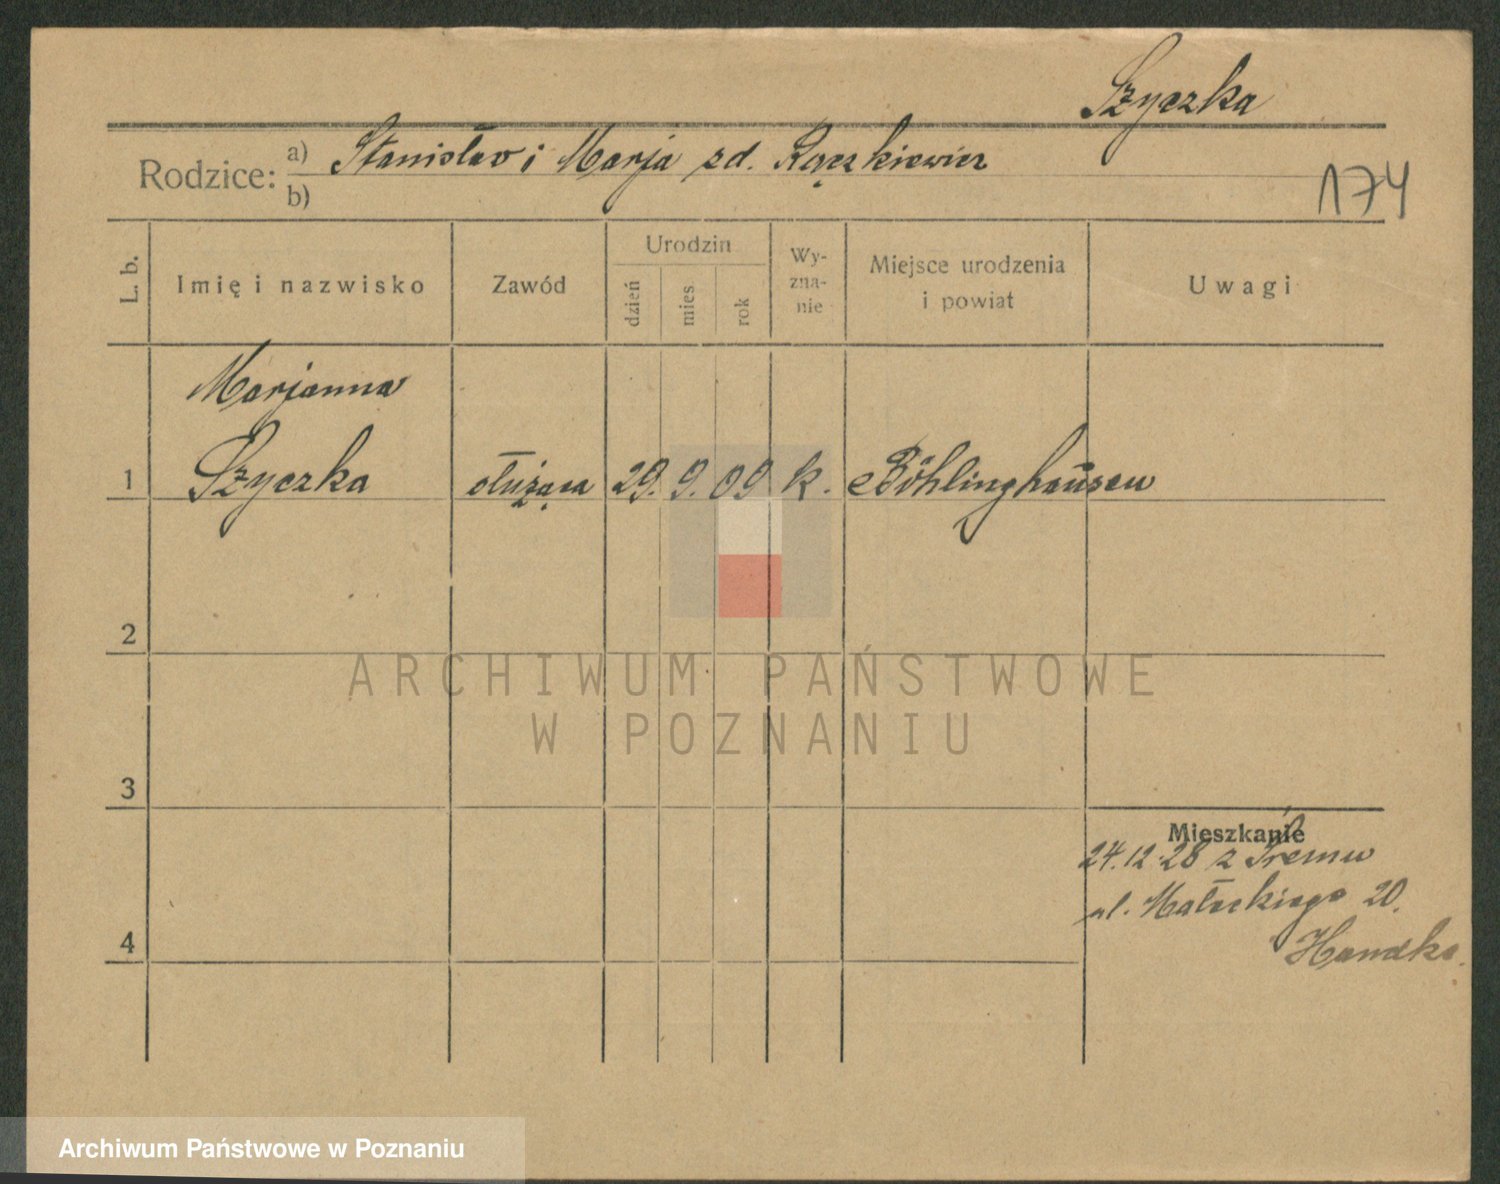 Szyczka
Rodzice: a) Stanisław i Marja zd. Rączkiewicz
b)
174
L. b.
Imię i nazwisko
Zawód
Urodzin
dzień
mies
rok
Wy-
zna-
nie
Miejsce urodzenia
i powiat
Uwagi
Marjanna
1 Szyczka służąca 29. 9. 09 k. Böhlinghausen
2
3
4
Mieszkanie
24.12.28 z Śremu
ul. Małeckiego 20.
Handke.
ARCHIWUM PAŃSTWOWE
W POZNANIU
Archiwum Państwowe w Poznaniu